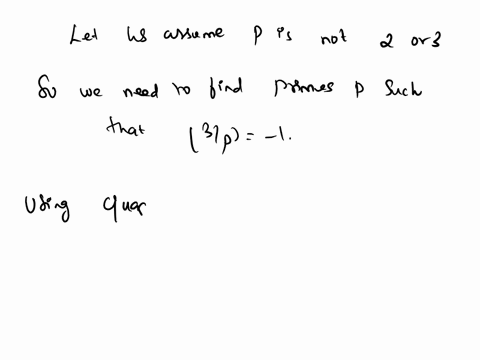 Let us assume p is not 2 or 3
So we need to find primes p such
that (3/p) = -1.
Using quar